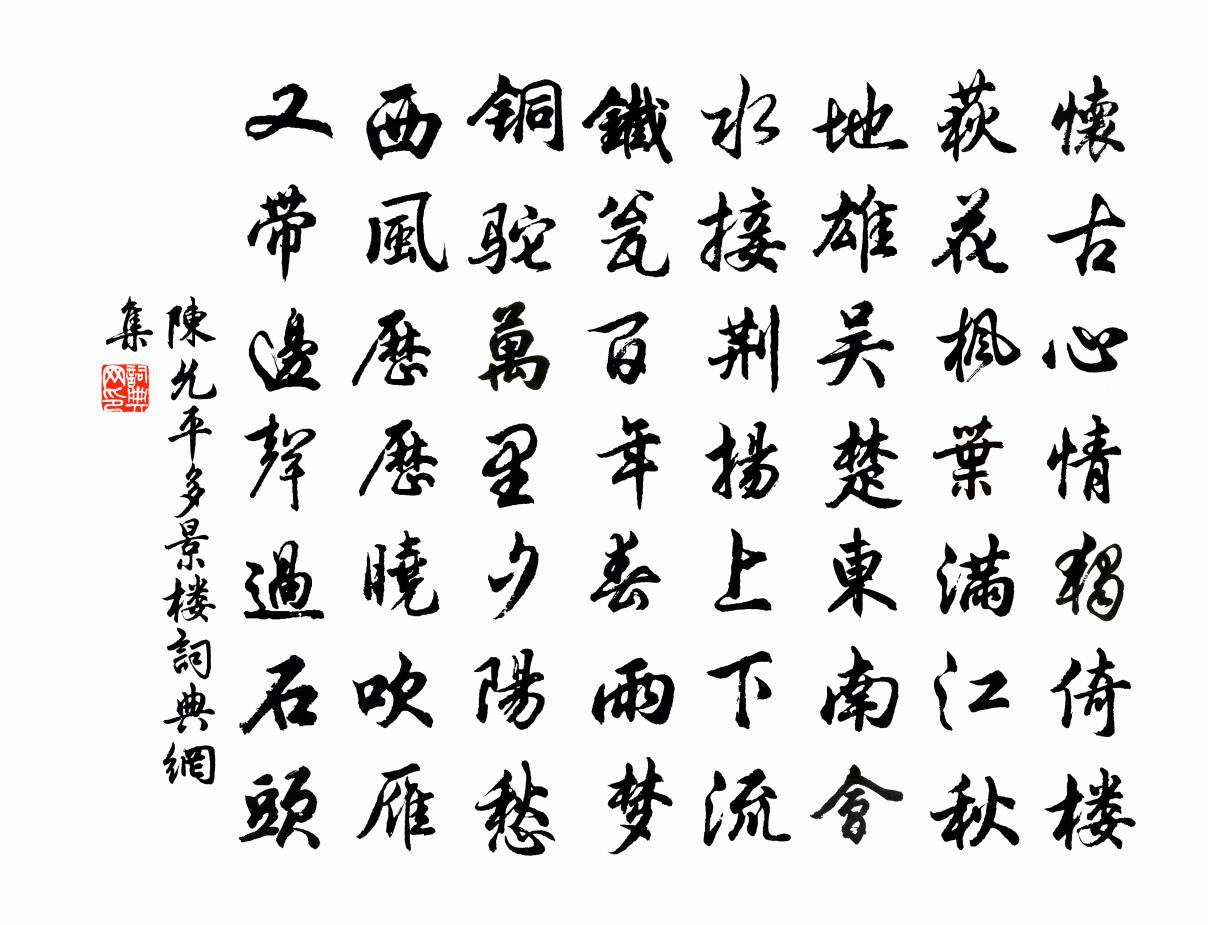 懷古心情獨倚楼
荻花楓葉滿江秋
地雄吴楚東南會
水接荆揚上下流
鐵瓮百年春雨梦
铜駝萬里夕陽愁
西風歷歷曉吹雁
又帶邊聲過石頭
陳允平多景楼詞典網
集
詞典网印